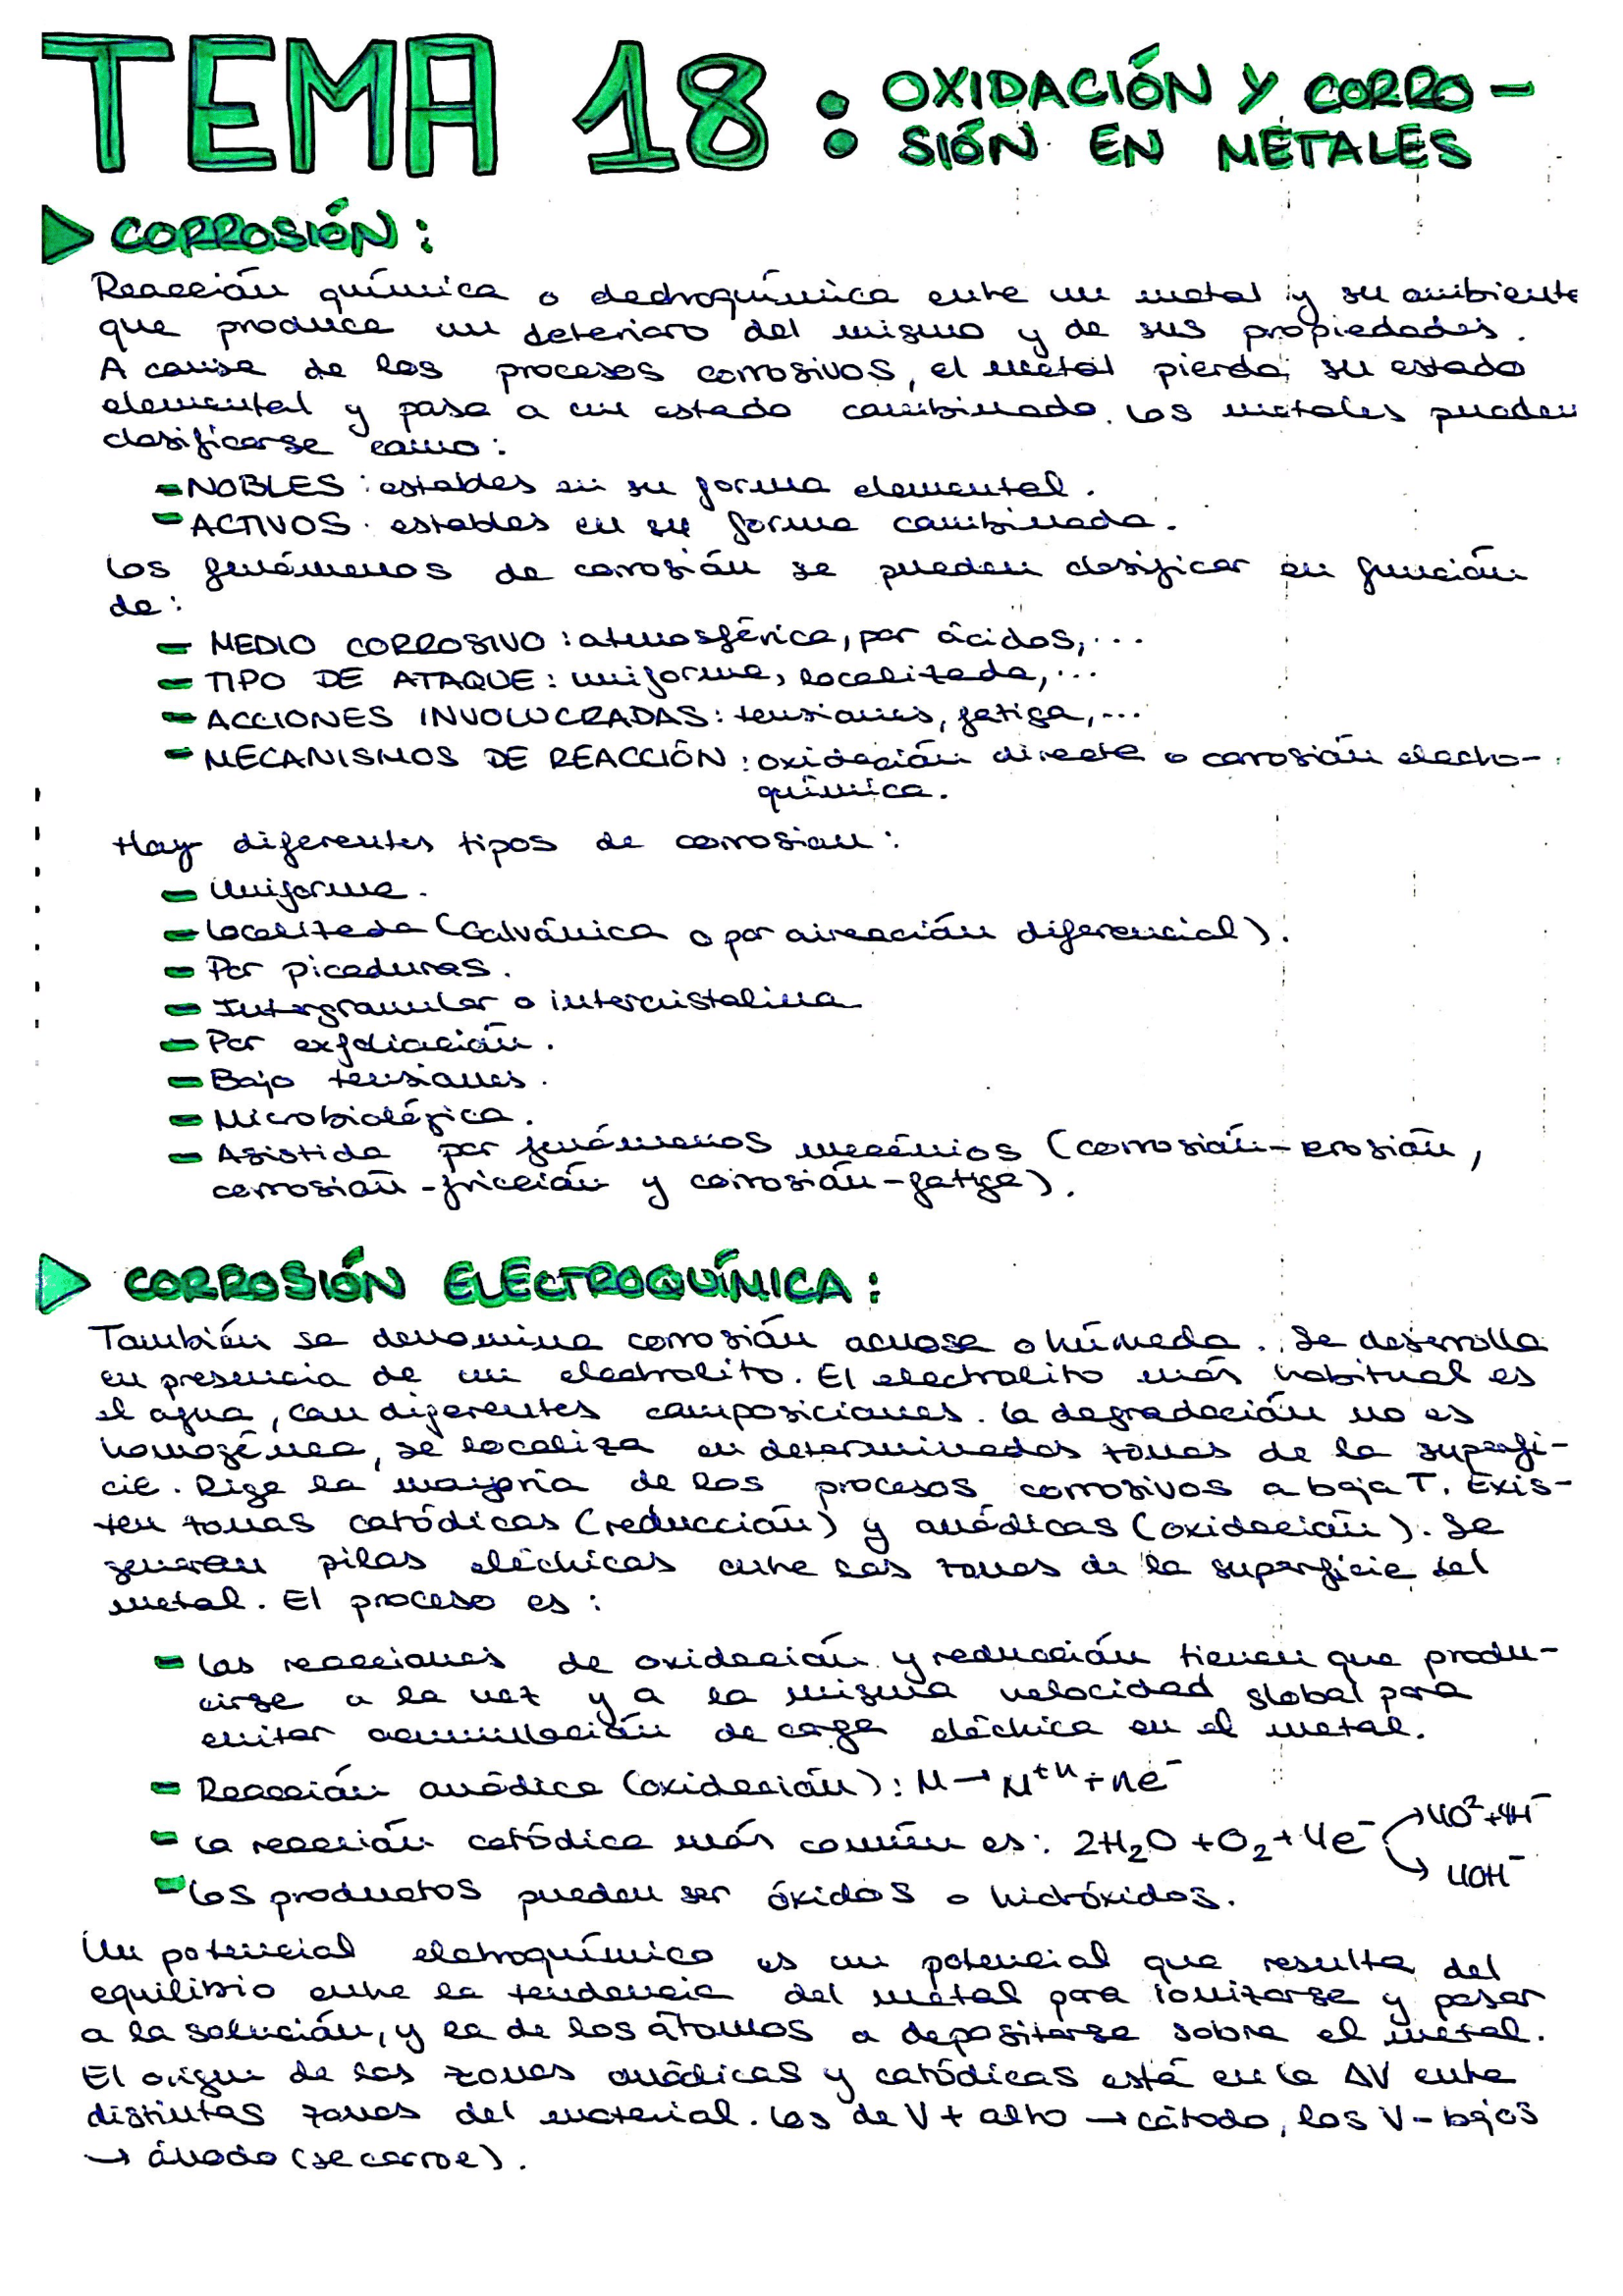 TEMA 18: OXIDACIÓN Y CORRO-
SIÓN EN METALES
CORROSIÓN:
Reacción química o electroquímica entre un metal y su ambiente
que produce un deterioro del mismo y de sus propiedades.
A causa de los procesos corrosivos, el metal pierde su estado
elemental y pasa a un estado combinado. Los metales pueden
clasificarse como:
- NOBLES: estables en su forma elemental.
- ACTIVOS: estables en su forma combinada.
Los fenómenos de corrosión se pueden clasificar en función
de:
- MEDIO CORROSIVO: atmosférica, por ácidos,...
- TIPO DE ATAQUE: uniforme, localizada,...
- ACCIONES INVOLUCRADAS: tensiones, fatiga,...
- MECANISMOS DE REACCIÓN: oxidación directa o corrosión electro-
química.
Hay diferentes tipos de corrosión:
- Uniforme.
- Localizada (Galvánica o por aireación diferencial).
- Por picaduras.
- Intergranular o intercristalina
- Por exfoliación.
- Bajo tensiones.
- Microbiológica.
- Asistida por fenómenos mecánicos (corrosión-erosión,
corrosión-fricción y corrosión-fatiga).
CORROSIÓN ELECTROQUÍMICA:
También se denomina corrosión acuosa o húmeda. Se desarrolla
en presencia de un electrolito. El electrolito más habitual es
el agua, con diferentes composiciones. La degradación no es
homogénea, se localiza en determinadas zonas de la superfi-
cie. Rige la mayoría de los procesos corrosivos a baja T. Exis-
ten zonas catódicas (reducción) y anódicas (oxidación). Se
generan pilas eléctricas entre las zonas de la superficie del
metal. El proceso es:
- Las reacciones de oxidación y reducción tienen que produ-
cirse a la vez y a la misma velocidad global para
evitar acumulación de carga eléctrica en el metal.
- Reacción anódica (oxidación): M → M⁺ⁿ + ne⁻
- La reacción catódica más común es: 2H₂O + O₂ + 4e⁻ → 4O² + 4H⁻
→ 4OH⁻
- Los productos pueden ser óxidos o hidróxidos.
Un potencial eletroquímico es un potencial que resulta del
equilibrio entre la tendencia del metal para ionizarse y pasar
a la solución, y la de los átomos a depositarse sobre el metal.
El origen de las zonas anódicas y catódicas está en la ΔV entre
distintas zonas del material. Los de V+ alto → cátodo, los V- bajos
→ ánodo (se corroe).